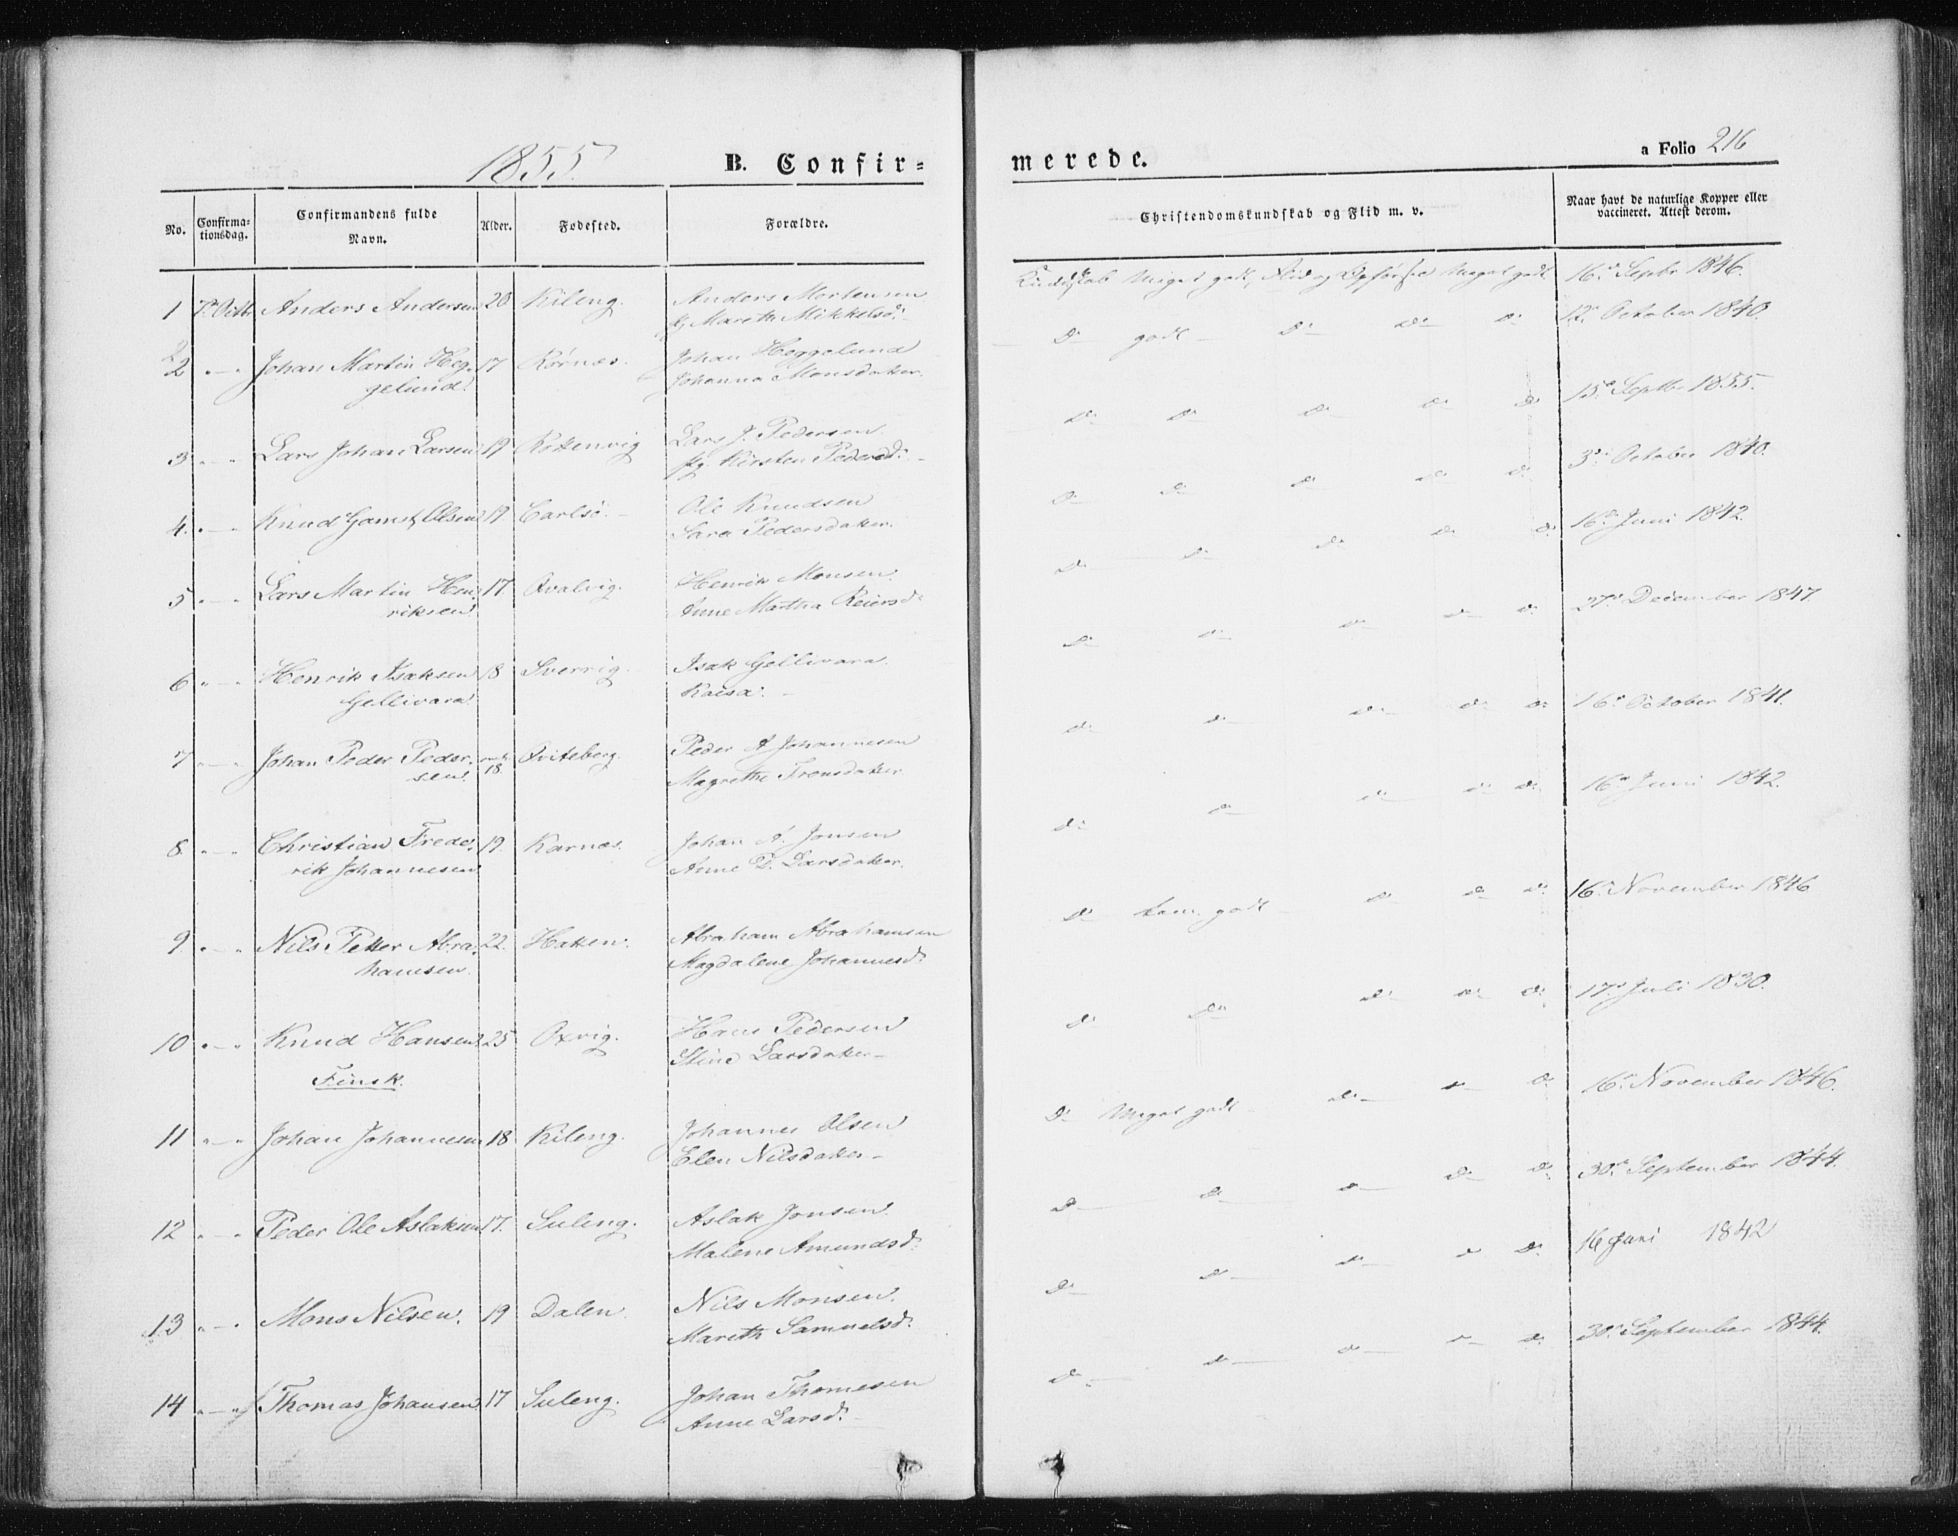 1855.
B. Confir=
merede.
a Folio 216
No.
Confirma-
tionsdag.
Confirmandens fulde
Navn.
Alder.
Fødested.
Forældre.
Christendomskundskab og Flid m. v.
Naar havt de naturlige Kopper eller
vaccineret. Attest derom.
1 7de Octbr Anders Andersen 20 Kileng. Anders Mortensen
Mareth Mikkelsd.
Kundskab Meget godt, Flid og Opførsel Meget godt 16de Septbr 1846.
2 " — " Johan Martin Heg- 17 Kørnæs. Johan Heggelund
gelund. Johanna Monsdatter.
Do godt Do Do Do 12te October 1840.
3 " — " Lars Johan Larsen 19 Rottenvig Lars J. Pedersen
Kirsten Pedersd.
Do Do Do Do Do 15de Septbr 1855.
4. " — " Knud Gamst Olsen 19 Carlsø. Ole Knudsen
Sara Pedersdatter.
Do Do Do Do Do 3die October 1840.
5 " — " Lars Martin Hen- 17 Qvalvig. Henrik Monsen.
riksen. Anne Martha Reiersd.
Do Do Do Do Do 16de Juni 1842.
6 " — " Henrik Isaksen 18 Sverrig. Isak Gellivara.
Gellivara. Kaisa.
Do Do Do Do Do 27de December 1847.
7 " — " Johan Peder Peder- 18. Qviteberg. Peder A Johannesen
sen. Magrethe Tronsdatter
Do Do Do Do Do 16de October 1841.
8 " — " Christian Frede- 19. Karnæs. Johan A. Jonsen
rik Johannesen Anne D. Larsdatter.
Do Do Do Do Do 16de Juni 1842.
9 " — " Nils Petter Abra- 22. Hatten. Abraham Abrahamsen
hamsen. Magdalene Johannesd.
Do tem. godt Do Do Do 16de November 1846
10 " — " Knud Hansen 25 Oxvig. Hans Pedersen
Finsk. Stine Larsdatter
Do Do Do Do Do 17de Juli 1830.
11 " — " Johan Johannesen 18 Kileng. Johannes Olsen
Elen Nilsdatter
Do Meget godt Do Do Do 16de November 1846.
12 " — " Peder Ole Aslaksen 17. Suleng. Aslak Jonsen
Malene Amundsd.
Do Do Do Do Do 30te September 1844.
13 " — " Mons Nilsen. 19 Dalen Nils Monsen.
Mareth Samuelsd.
Do Do Do Do Do 16 Juni 1842
14 " — " Thomas Johansen 17 Suleng. Johan Thomesen
Anne Larsd.
Do Do Do Do Do 30te September 1844.